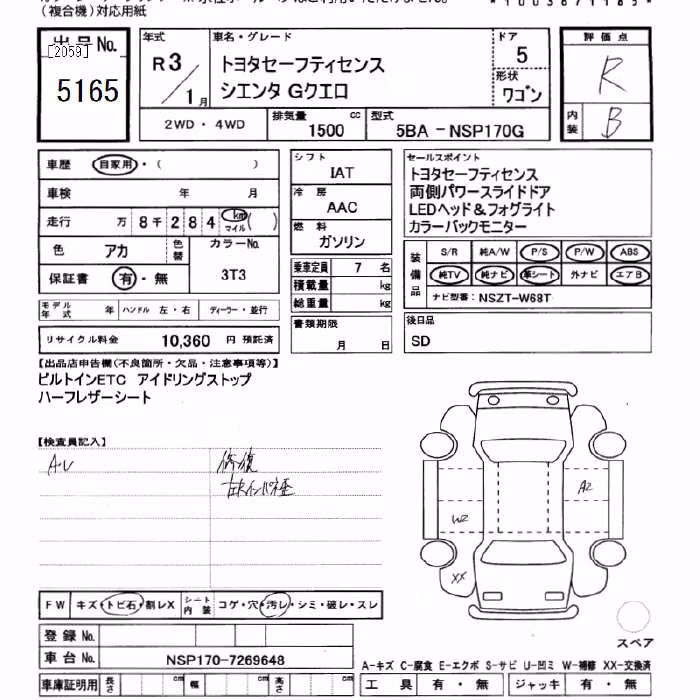 （複合機）対応用紙
出品No.
[2059]
5165
年式
R3
/1月
車名・グレード
トヨタセーフティセンス
シエンタ Gクエロ
ドア
5
形状
ワゴン
評価点
R
内装
B
2WD・4WD
排気量
1500
cc
型式
5BA－NSP170G
車歴
自家用・（ ）
車検 年 月
走行 万 8千 2 8 4 km マイル ( )
色 アカ
色替
カラーNo.
保証書 有・無
3T3
モデル年式 年
ハンドル 左・右
ディーラー・並行
リサイクル料金 10,360 円 預託済
シフト
IAT
冷房
AAC
燃料
ガソリン
乗車定員 7 名
積載量 kg
総重量 kg
書類期限
月 日
セールスポイント
トヨタセーフティセンス
両側パワースライドドア
LEDヘッド＆フォグライト
カラーバックモニター
装備品
S/R 純A/W P/S P/W ABS
純TV 純ナビ 革シート 外ナビ エアB
ナビ型番： NSZT-W68T
後日品
SD
【出品店申告欄（不良箇所・欠品・注意事項等）】
ビルトインETC アイドリングストップ
ハーフレザーシート
【検査員記入】
AU
修復
左Rインパネ歪
A2
W2
XX
FW キズ・トビ石・割レX
シート内装
コゲ・穴・汚レ・シミ・破レ・スレ
登録No.
車台No. NSP170-7269648
スペア
A-キズ C-腐食 E-エクボ S-サビ U-凹ミ W-補修 XX-交換済
車庫証明用 長さ cm 幅 cm 高さ cm
工具 有・無 ジャッキ 有・無